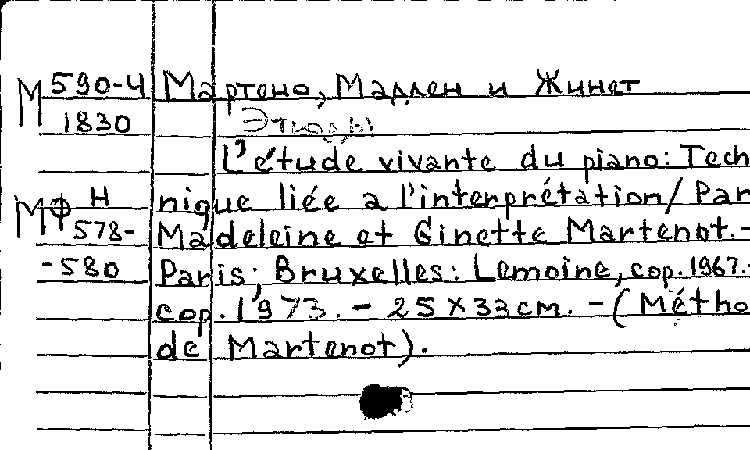 М 590-4 Мартено, Мадлен и Жинет
1830 Этюды
L'étude vivante du piano: Tech
nique liée a l'interprétation/ Par
Мф Н 578- Madeleine et Ginette Martenot.-
-580 Paris; Bruxelles: Lemoine, cop. 1967.-
cop. 1973. - 25 x 32 cm. - (Métho
de Martenot).